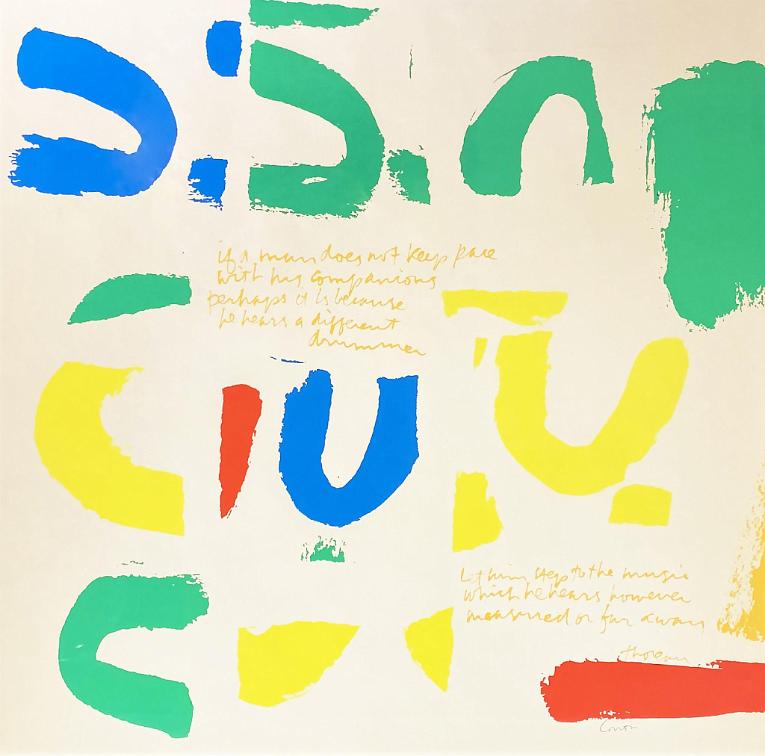 if a man does not keep pace
with his companions
perhaps it is because
he hears a different
drummer
let him step to the music
which he hears however
measured or far away
thoreau